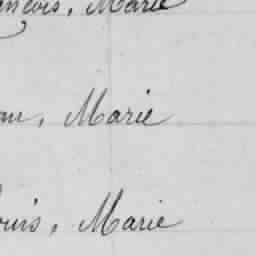 ançois, Marie
an, Marie
ouis, Marie